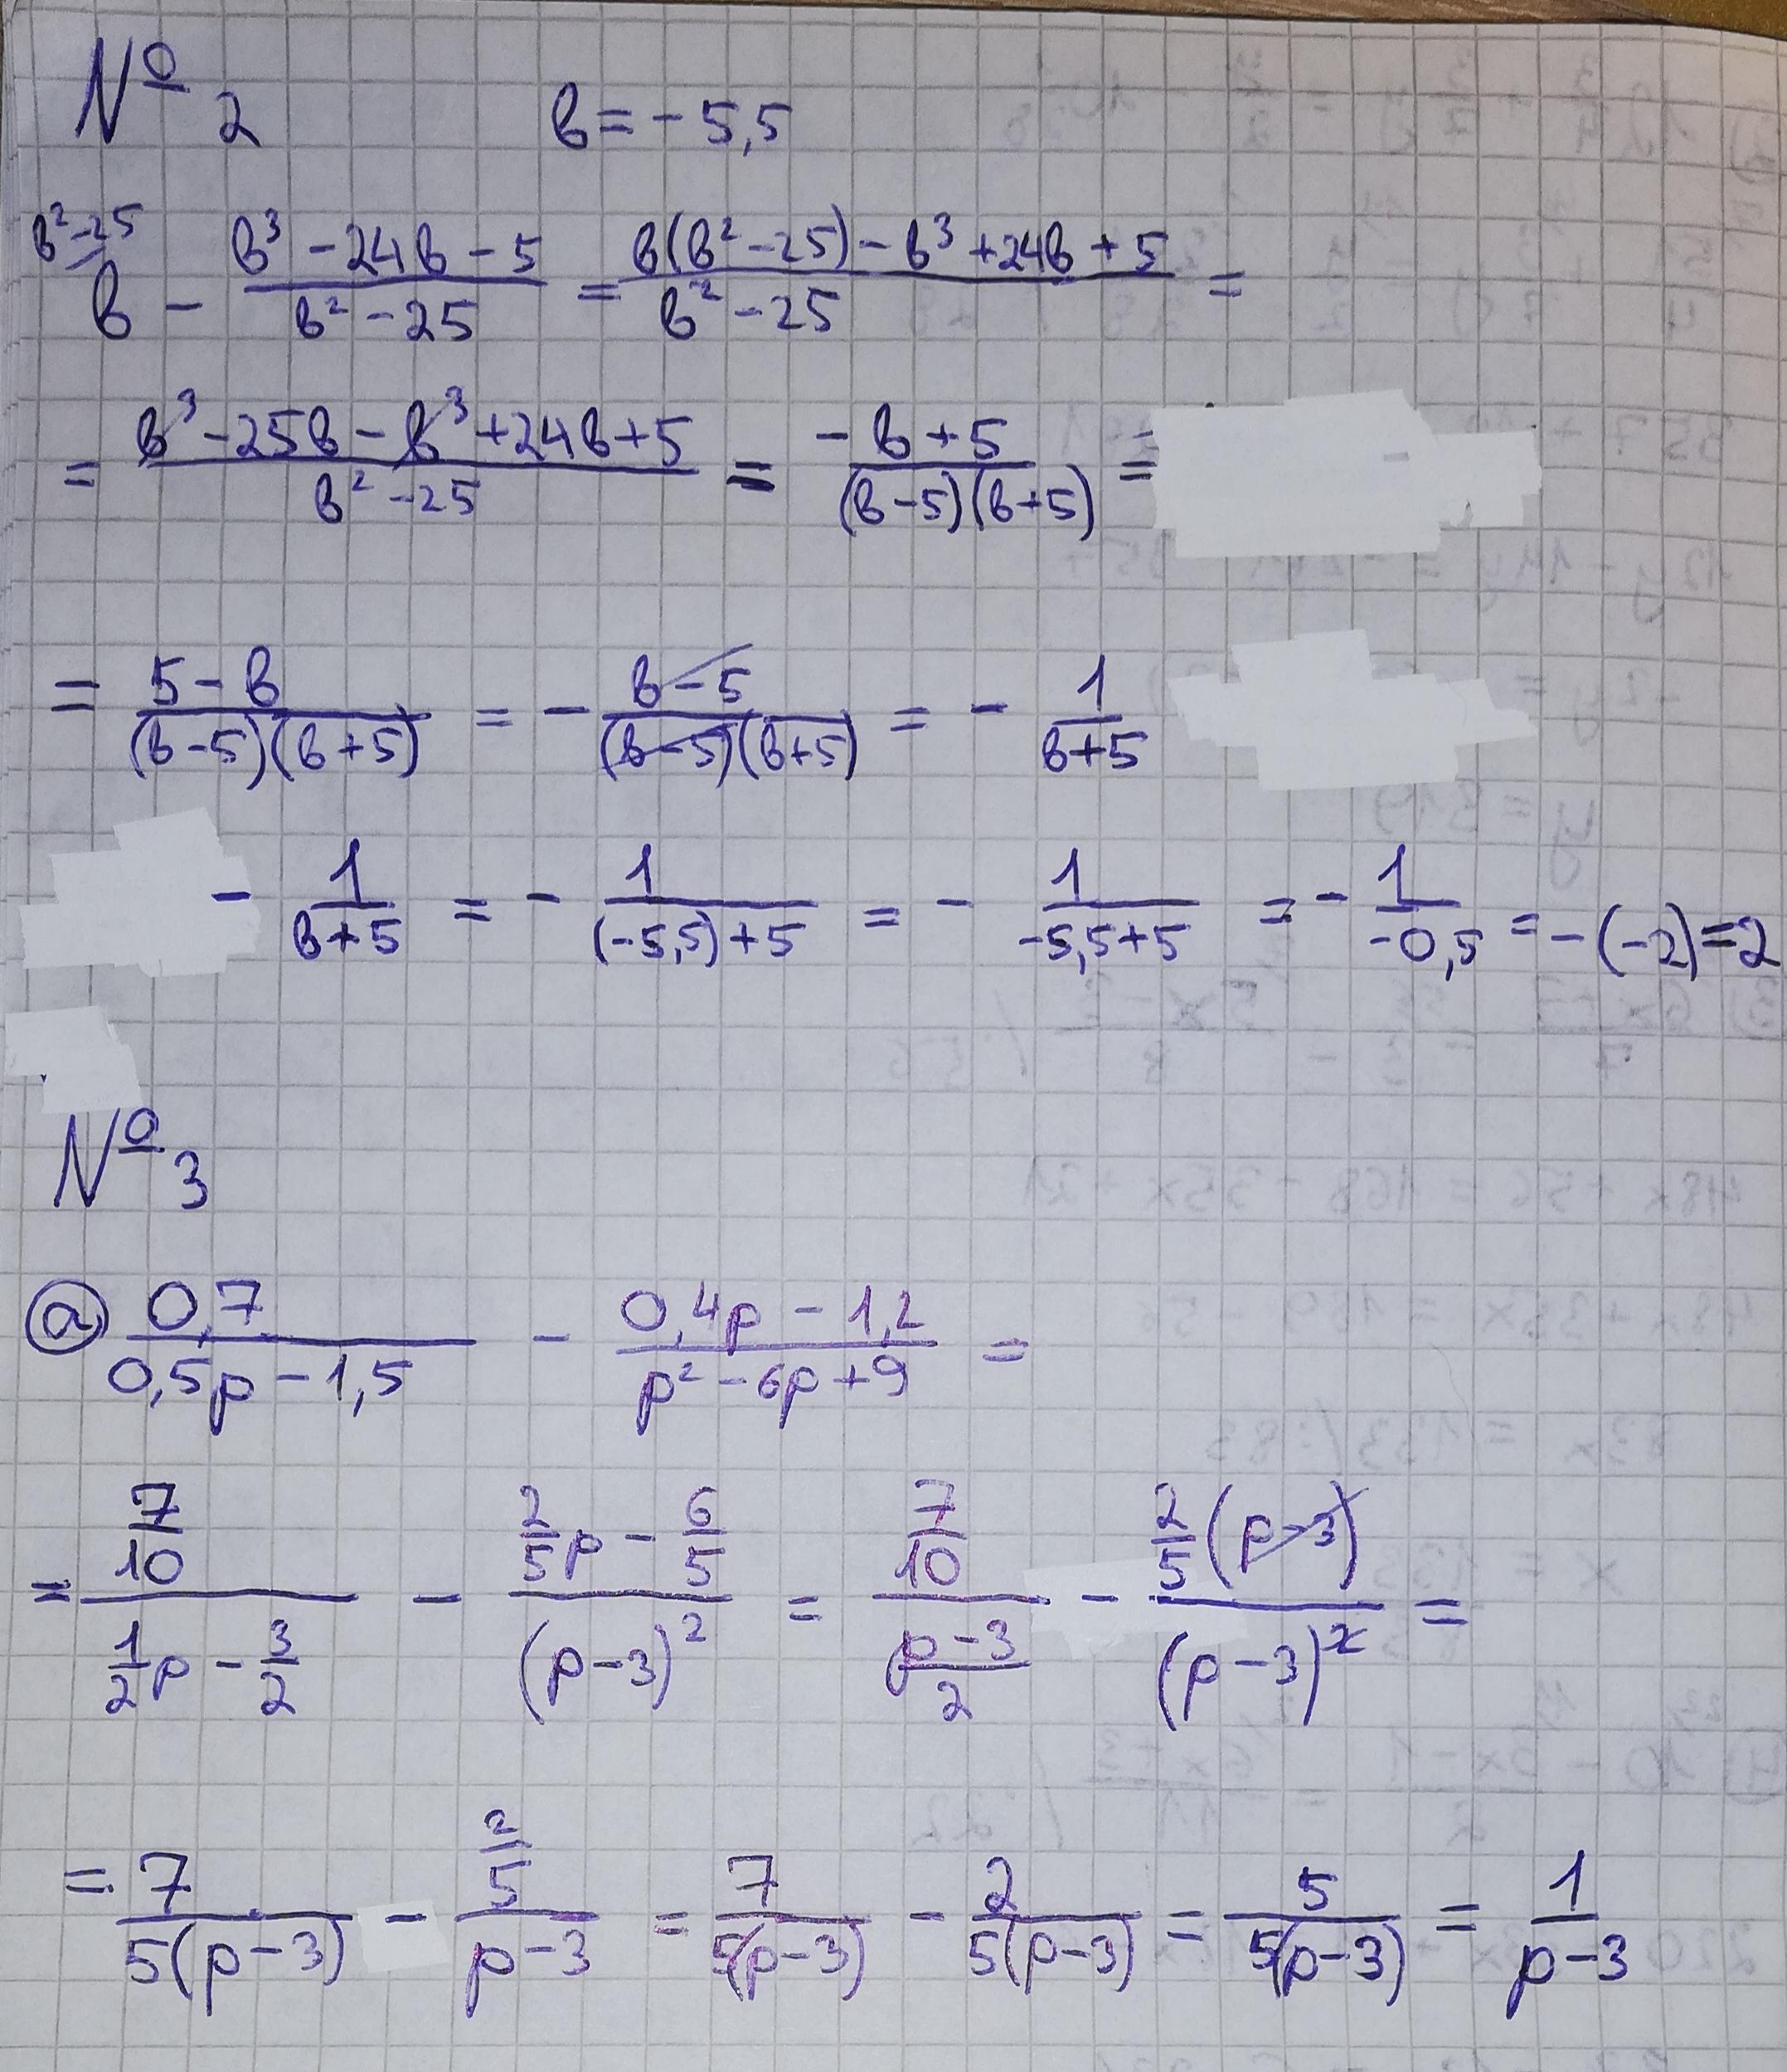 № 2 в = - 5,5
в² - 25
в - (в³ - 24в - 5)/(в² - 25) = (в(в² - 25) - в³ + 24в + 5)/(в² - 25) =
= (в³ - 25в - в³ + 24в + 5)/(в² - 25) = (-в + 5)/((в - 5)(в + 5)) =
= (5 - в)/((в - 5)(в + 5)) = - (в - 5)/((в - 5)(в + 5)) = - 1/(в + 5)
- 1/(в + 5) = - 1/((-5,5) + 5) = - 1/(-5,5 + 5) = - 1/(-0,5) = -(-2) = 2
№ 3
а) 0,7/(0,5p - 1,5) - (0,4p - 1,2)/(p² - 6p + 9) =
= (7/10)/(1/2 p - 3/2) - (2/5 p - 6/5)/(p - 3)² = (7/10)/((p - 3)/2) - (2/5 (p - 3))/(p - 3)² =
= 7/(5(p - 3)) - (2/5)/(p - 3) = 7/(5(p - 3)) - 2/(5(p - 3)) = 5/(5(p - 3)) = 1/(p - 3)